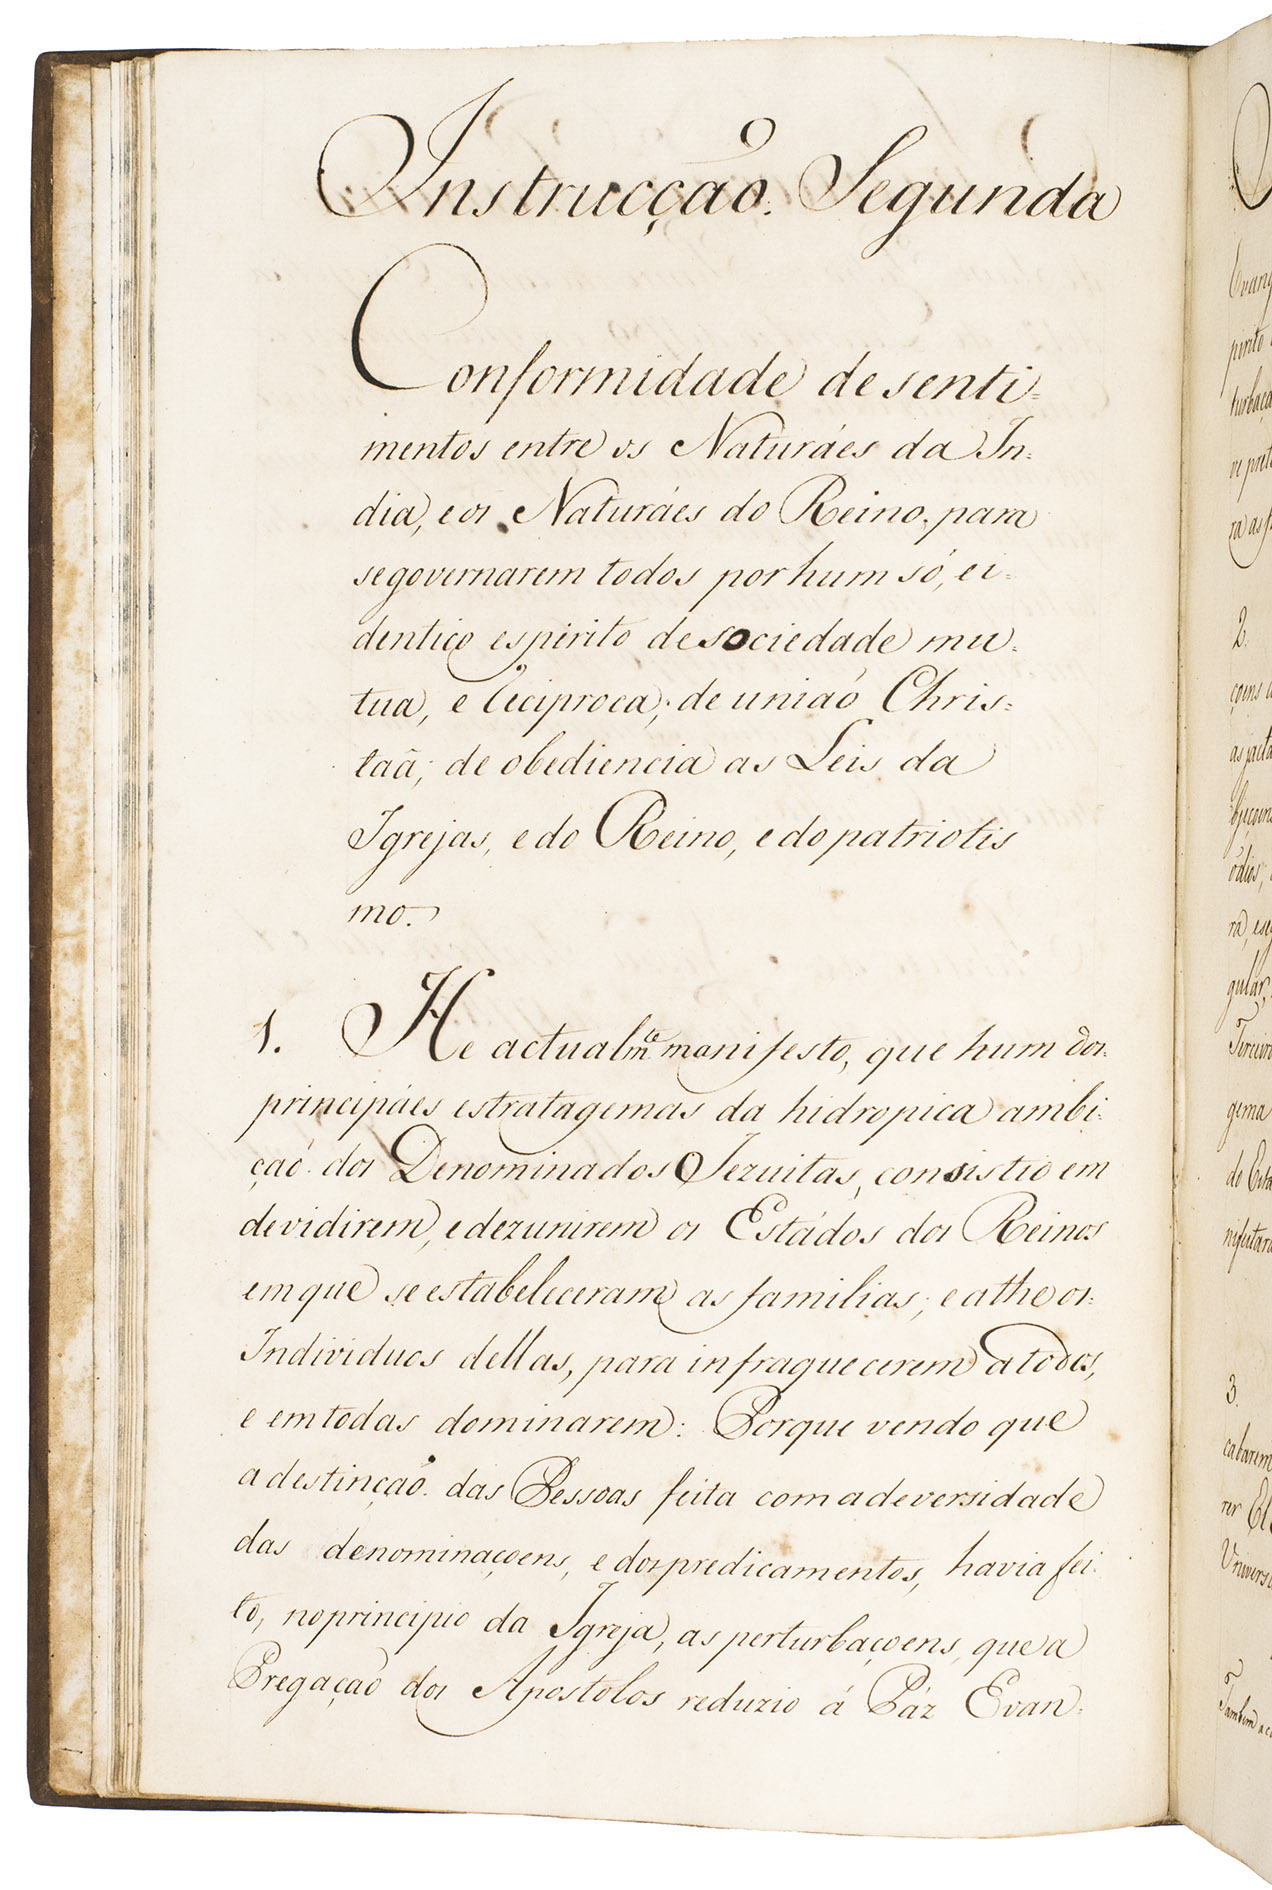 Instrucção. Segunda
Conformidade de senti=
mentos entre os Naturáes da In=
dia, e os Naturáes do Reino, para
se governarem todos por hum só, e i=
dentico espirito de sociedade mu=
tua, e reciproca; de uniaó Chris=
taã; de obediencia as Leis da
Igrejas, e do Reino, e do patriotis
mo.
1. He actualm.te manifesto, que hum dos
principáes estratagemas da hidropica ambi=
çaó dos Denominados Jezuitas, consistio em
devidirem, e dezunirem os Estádos dos Reinos
em que se estabeleceram as familias; e athe os
Individuos dellas, para infraquecerem a todos,
e em todas dominarem: Porque vendo que
a destinçaõ das Pessoas feita com a deversidade
das denominaçoens, e dos predicamentos, havia fei=
to, no principio da Igreja, as perturbaçoens, que a
Pregaçaõ dos Apostolos reduzio á Páz Evan=
2.
3.